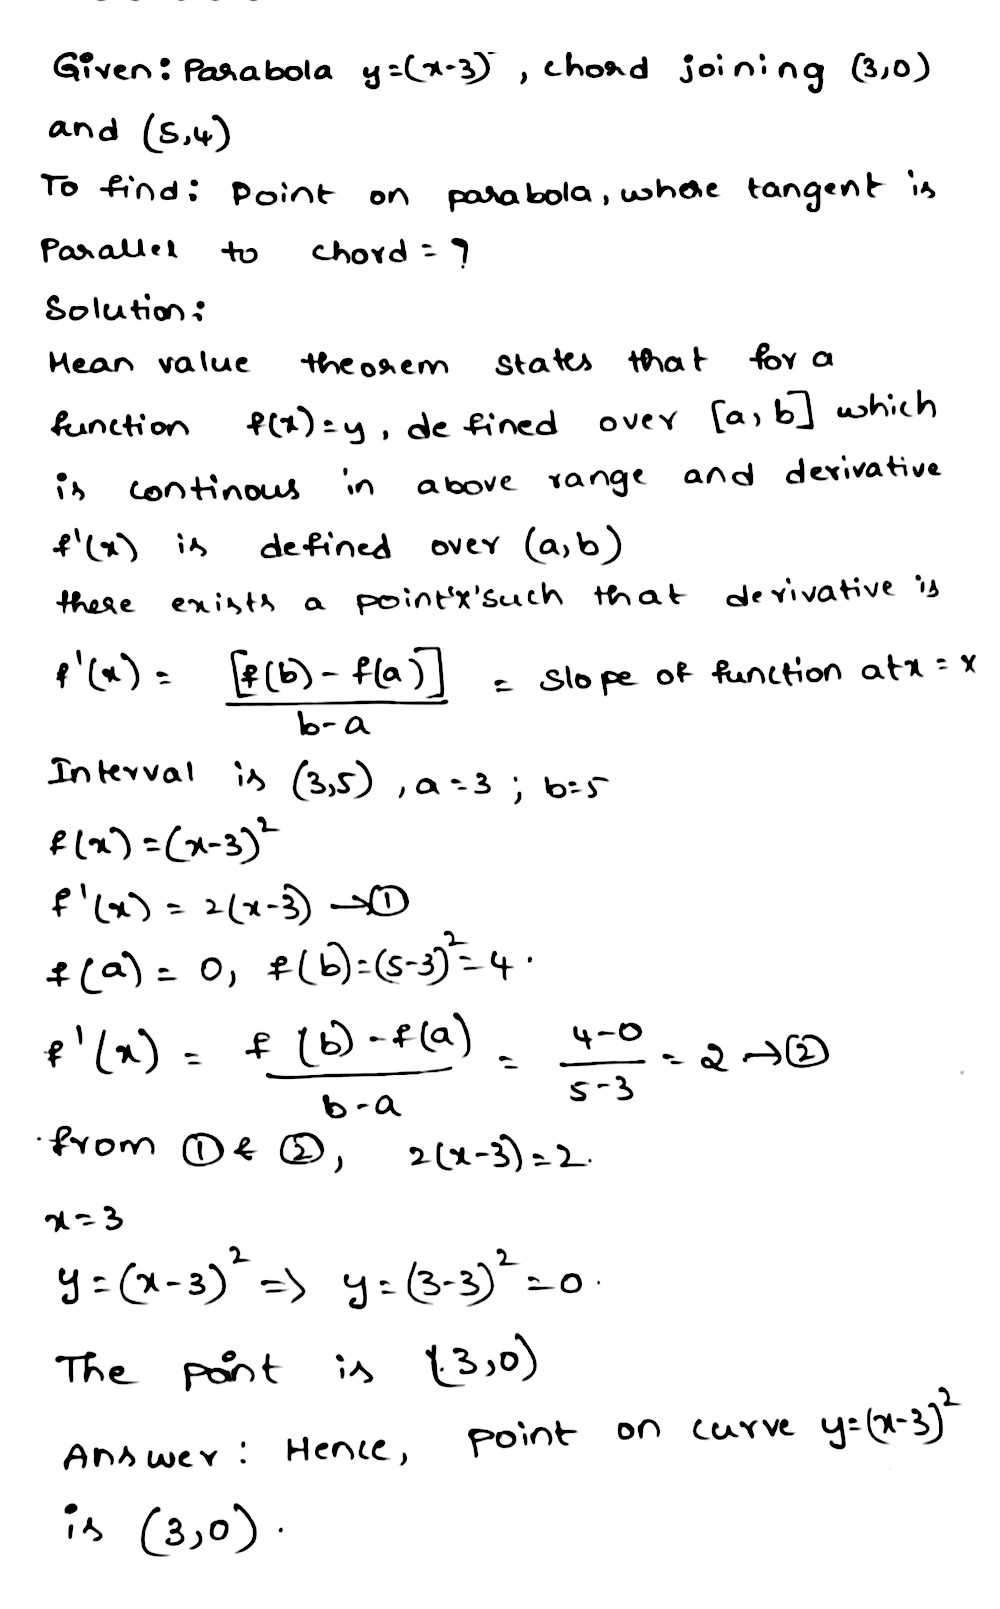 Given: Parabola y=(x-3) , chord joining (3,0)
and (5,4)
To find: Point on parabola, where tangent is
Parallel to chord = ?
Solution:
Mean value theorem states that for a
function f(x)=y, defined over [a,b] which
is continous in above range and derivative
f'(x) is defined over (a,b)
there exists a point'x'such that derivative is
f'(x) = [f(b) - f(a)] / b-a = slope of function at x = x
Interval is (3,5) , a=3 ; b=5
f(x) = (x-3)²
f'(x) = 2(x-3) →①
f(a) = 0, f(b)=(5-3)²=4.
f'(x) = f(b)-f(a) / b-a = 4-0 / 5-3 = 2 →②
from ① & ②, 2(x-3)=2.
x=3
y=(x-3)² => y=(3-3)²=0.
The point is (3,0)
Answer: Hence, point on curve y=(x-3)²
is (3,0).